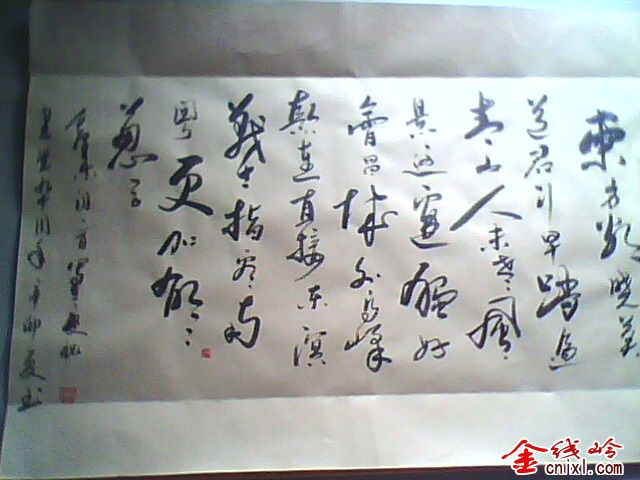 東方欲曉莫
道君行早踏遍
青山人未老風
景這邊獨好
會昌城外高峰
顛連直接東溟
戰士指看南
粵更加郁々
葱々
建党九十周年辛卯夏书
金线岭
cnjxl.com